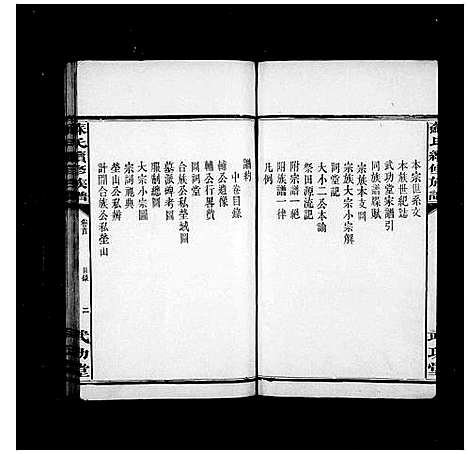 蘇氏續修族譜
武功堂
本宗世系文
本族世紀誌
武功堂家譜引
同族譜牒賦
宗族本支圖
宗族大宗小宗解
祠堂記
大小二公本論
祭田源流記
附宗譜一絕
附族譜一律
凡例
譜約
中卷目錄
輔公遺像
輔公行畧蕡
圖祠堂
合族公私塋域圖
墓誌碑考圖
服制總圖
大宗小宗圖
宗祠祀典
塋山公私辨
計開合族公私塋山
蘇氏續修族譜
卷首
目錄
二
武功堂